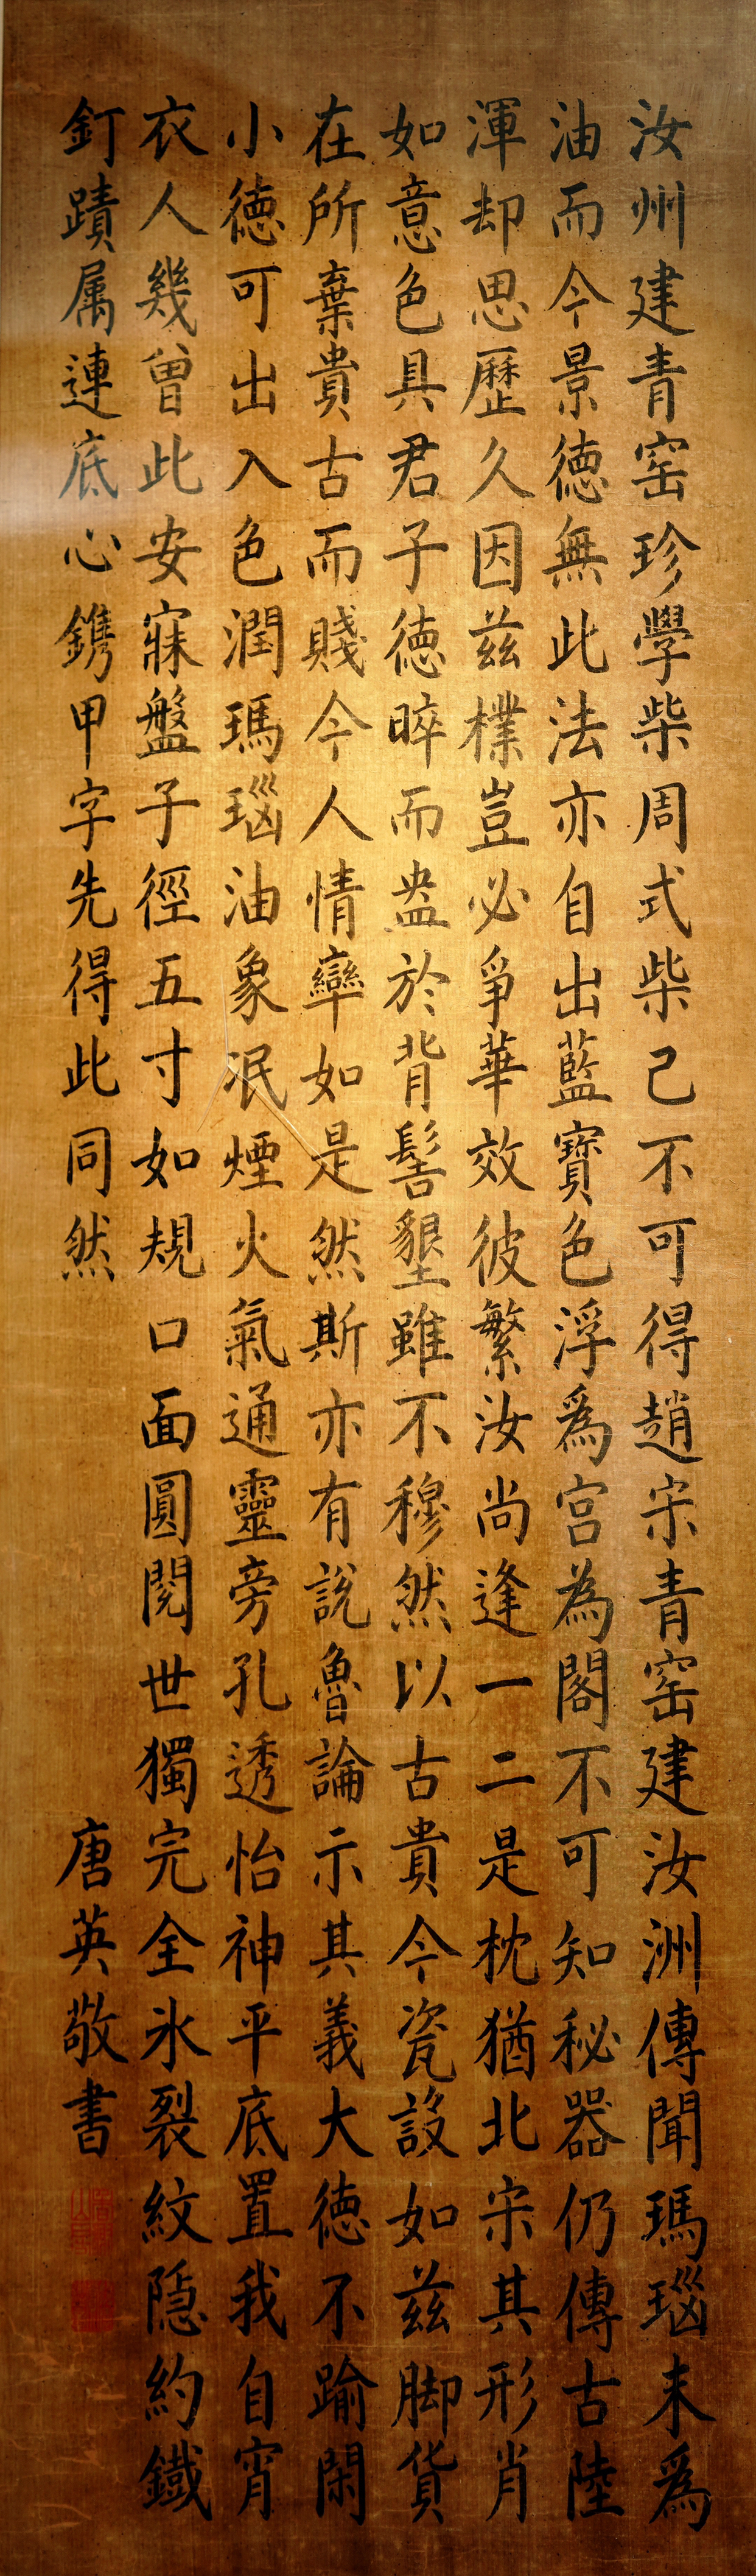 汝州建青窑珍學柴周式柴已不可得趙宋青窑建汝洲傳聞瑪瑙末爲
油而今景德無此法亦自出藍寶色浮爲宫為閣不可知秘器仍傳古陸
渾却思歷久因兹樸豈必爭華效彼繁汝尚逢一二是枕猶北宋其形肖
如意色具君子德晬而盎於背髻墾雖不穆然以古貴今瓷設如兹脚貨
在所棄貴古而賤今人情率如是然斯亦有說魯論示其義大德不踰閑
小德可出入色潤瑪瑙油象泯煙火氣通靈旁孔透怡神平底置我自宵
衣人幾曾此安寐盤子徑五寸如規口面圓閱世獨完全氷裂紋隐約鐵
釘蹟属連底心鐫甲字先得此同然
唐英敬書